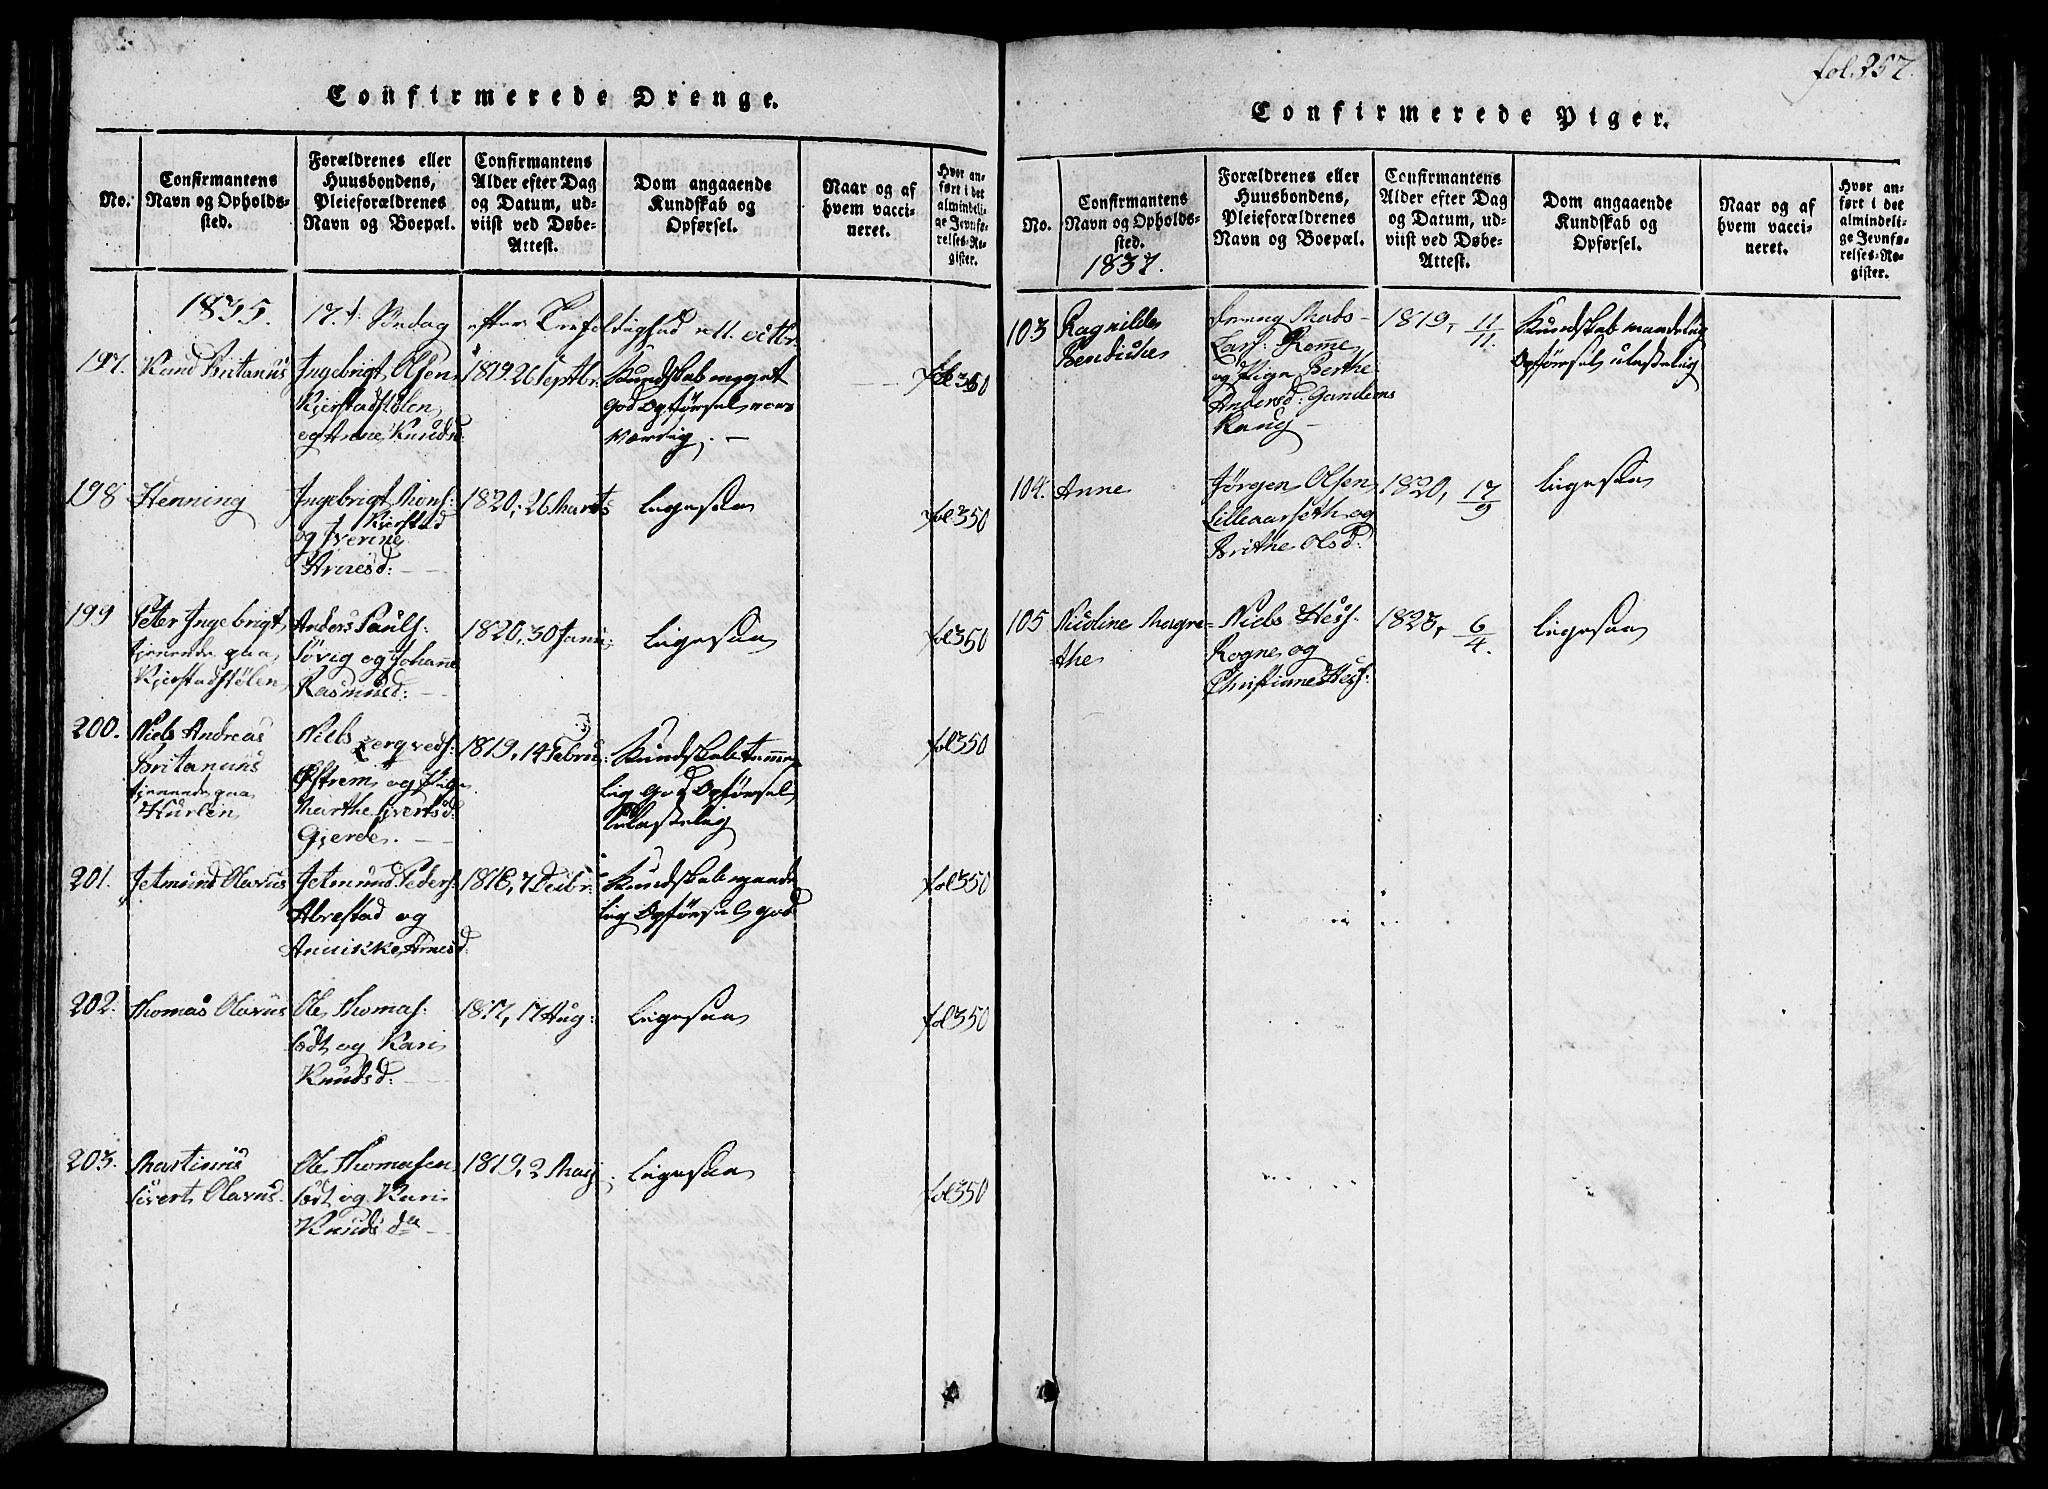 Confirmerede Drenge.
No.
Confirmantens
Navn og Opholds-
sted.
Forældrenes eller
Huusbondens,
Pleieforældrenes
Navn og Boepæl.
Confirmantens
Alder efter Dag
og Datum, ud-
viist ved Døbe-
Attest.
Dom angaaende
Kundskab og
Opførsel.
Naar og af
hvem vacci-
neret.
Hvor an-
ført i det
almindeli-
ge Jevnfø-
relses-Re-
gister.
1835. 17. Søndag efter Trefoldighed 11. octbr.
197. Knud Britanus
Ingebrigt Olsen
Kjerstadstølen
og Anne Knudsd:
1819. 26 Septbr.
Kundskab meget
god Opførsel roes
værdig. —
fol 350
198 Henning
Ingebrigt Mons:
Kjerstad
og Iverine
Arnesd:
1820, 26 Marts
ligesaa
fol 350
199 Peter Ingebrigt
tjenende paa
Kjerstadstølen
Anders Pauls:
Søvig og Johanne
Rasmusd:
1820, 30 Janu:
ligesaa
fol 350
200. Niels Andreas
Britanus
tjenende paa
Hurlen
Niels
Østrem og Pige
Marthe Sivertsd:
Gjerde.
1819, 14 Febru:
Kundskab temme
lig god Opførsel
ulastelig
fol 350
201. Jetmund Olavus
Jetmund Peders:
Abrestad og
Annikke Arnesd:
1818, 7 Decbr:
Kundskab maade
lig Opførsel god
fol 350
202. Thomas Olavus
Ole Thomas:
og Kari
Knudsd:
1817, 17 Aug:
ligesaa
fol 350
203. Martinus
Sivert Olavus
Ole Thomasen
og Kari
Knudsd
1819, 2 Maij
ligesaa
fol 350
fol. 357.
Confirmerede Piger.
No.
Confirmantens
Navn og Opholds-
sted.
1837.
Forældrenes eller
Huusbondens,
Pleieforældrenes
Navn og Boepæl.
Confirmantens
Alder efter Dag
og Datum, ud-
viist ved Døbe-
Attest.
Dom angaaende
Kundskab og
Opførsel.
Naar og af
hvem vacci-
neret.
Hvor an-
ført i det
almindeli-
ge Jevnfø-
relses-Re-
gister.
103 Ragnilde
Bendicte
Dreng Mads
Lars: Romme
og Pige Berthe
Andersd:
Haug
1819, 11/11.
Kundskab maadelig
Opførsel ulastelig
104. Anne
Jørgen Olsen
Lilleaarseth og
Brithe Olsd:
1820, 17/9
ligesaa
105 Nicoline Magre=
the
Niels Hess
Rogne og
Christiane Hess:
1823, 6/4.
ligesaa